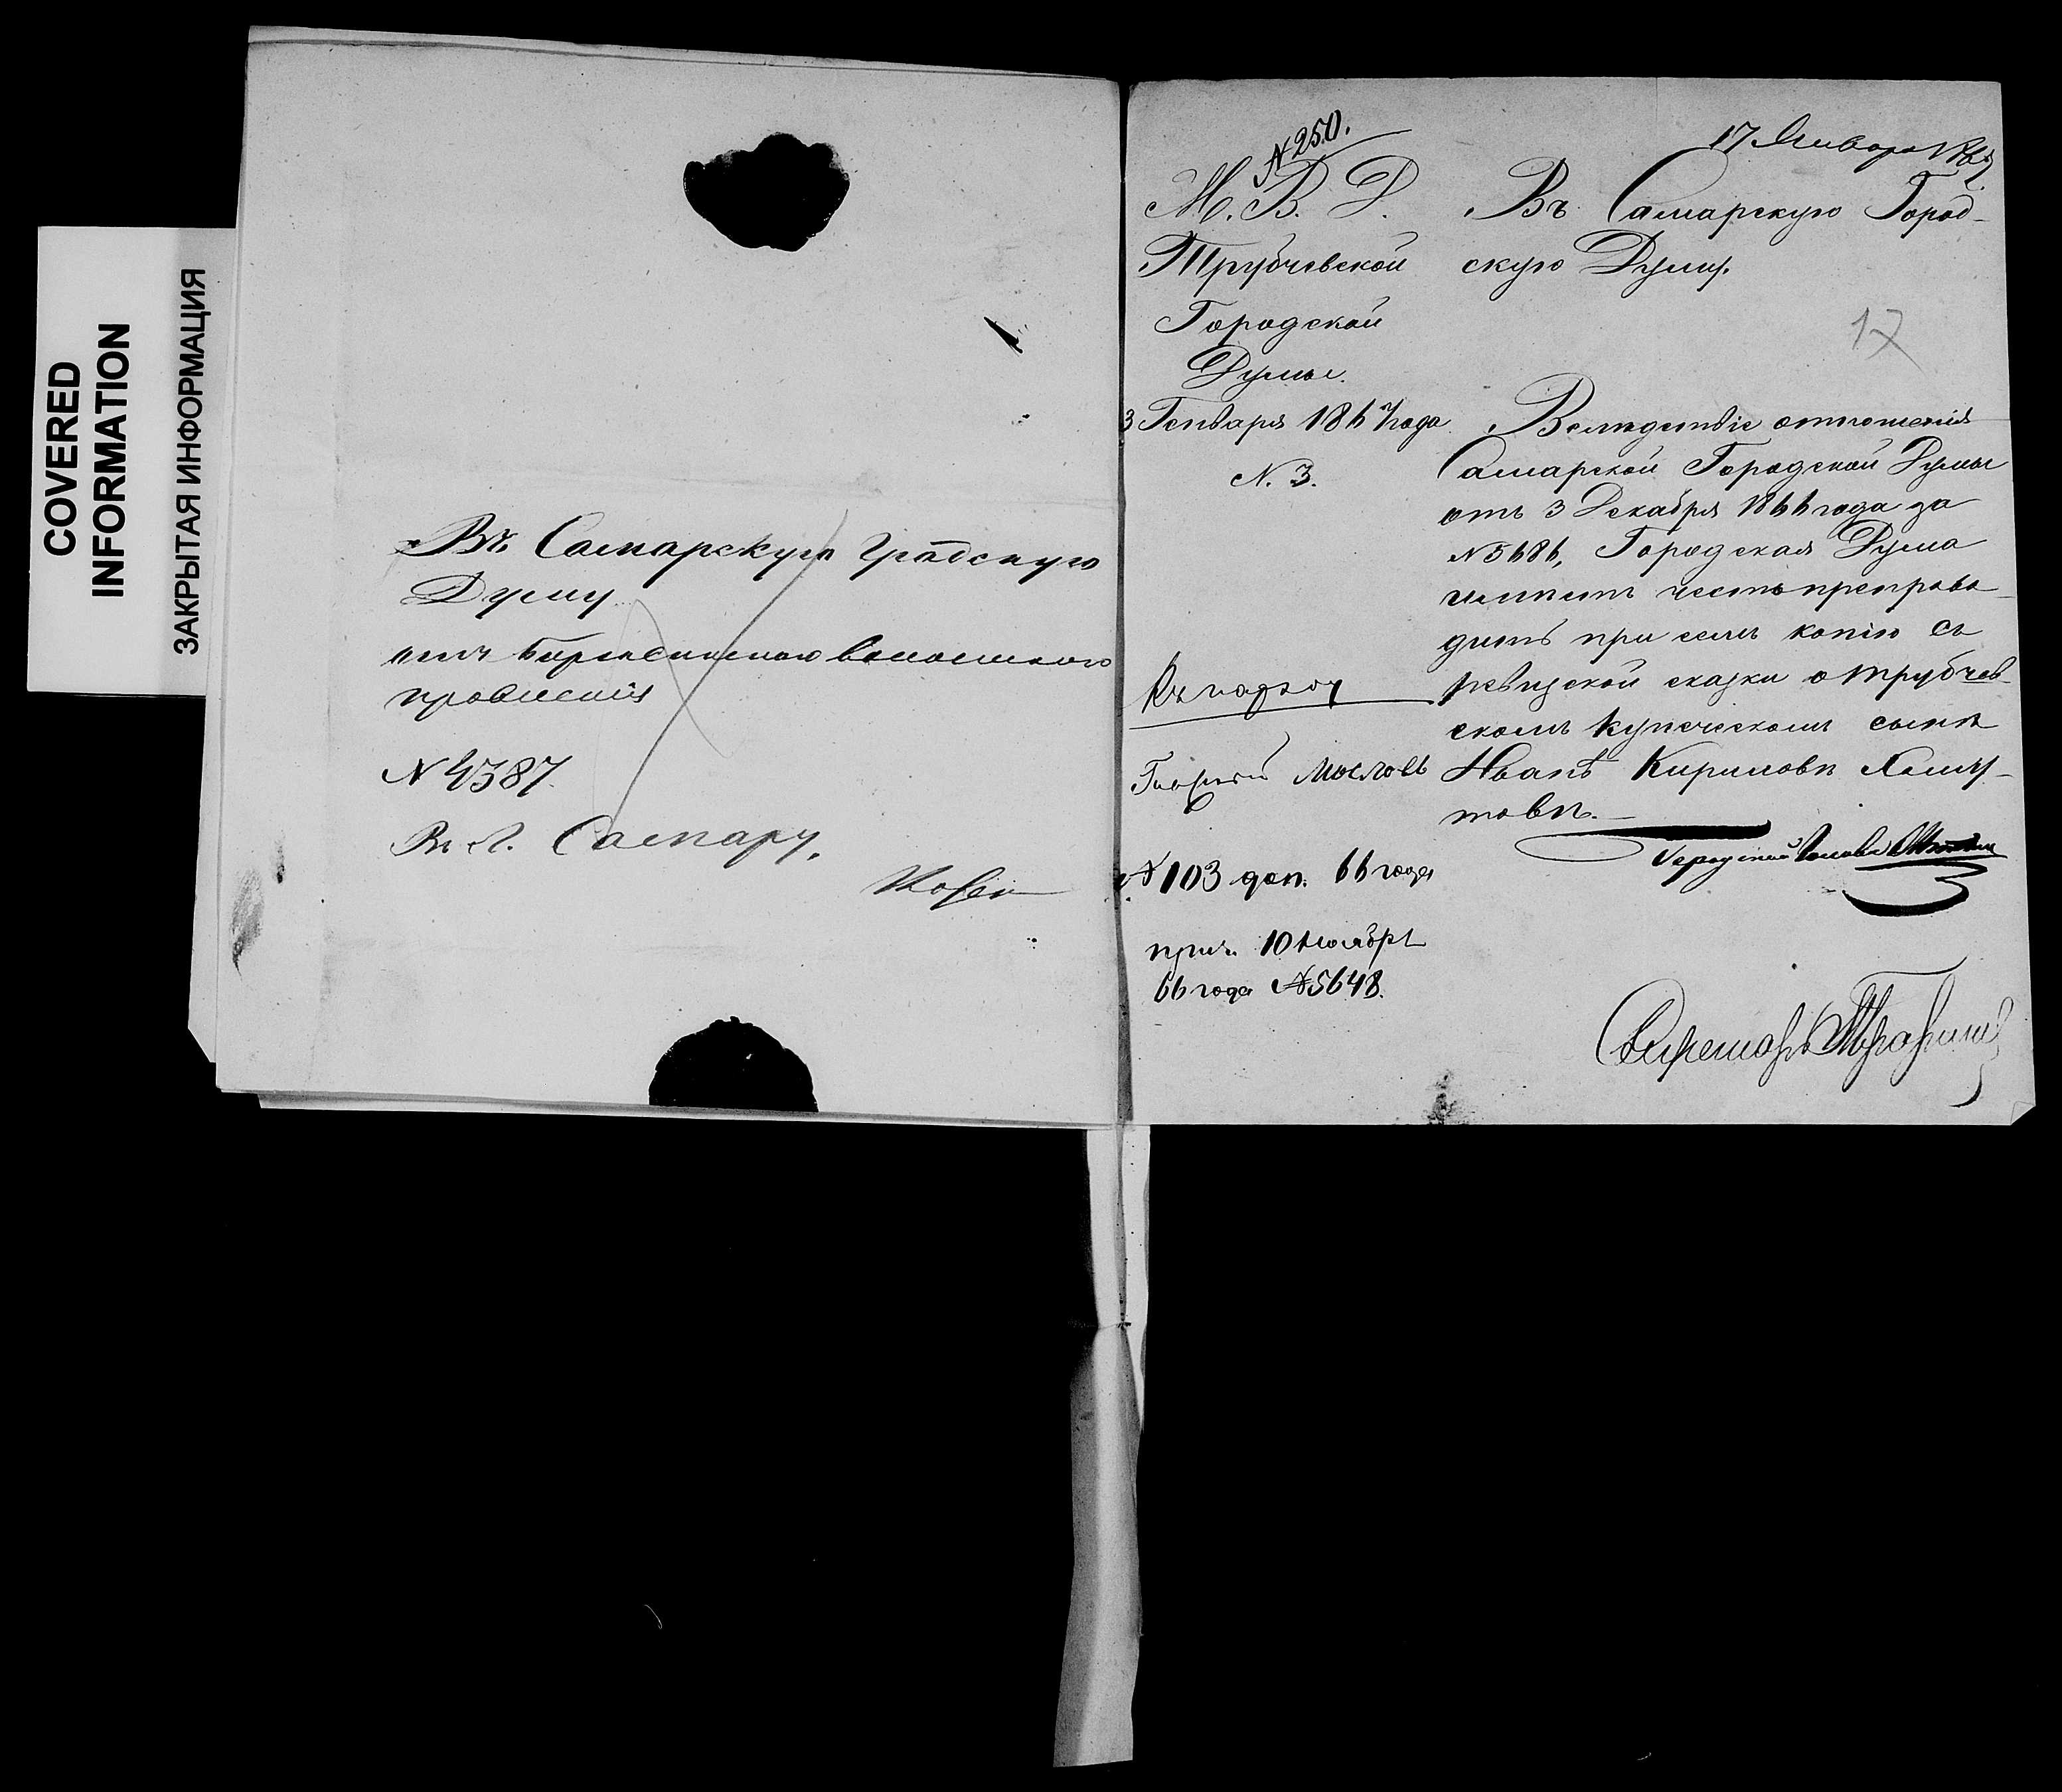 COVERED
INFORMATION
ЗАКРЫТАЯ ИНФОРМАЦИЯ
Въ Самарскую Градскую
Думу
волостного
правленія
N 4387.
Въ г. Самару.
N 250.
17 Января 1867
М. В. Д.
Трубчевской
Городской
Думы.
3 Генваря 1867 года
N. 3.
Въ Самарскую Город-
скую Думу.
17
Вслѣдствіе отношенія
Самарской Городской Думы
отъ 3 Декабря 1866 года за
N 5686, Городская Дума
имѣетъ честь препрово-
дить при семъ копію съ
ревизской сказки о трубчев-
скомъ купеческомъ сынѣ
Иванѣ Кириловѣ Хаму-
товѣ.
Городской Голова
Секретарь
Къ наряду
Масловъ
N 103 доп. 66 года
прич. 10 Ноября
66 года N 5648.